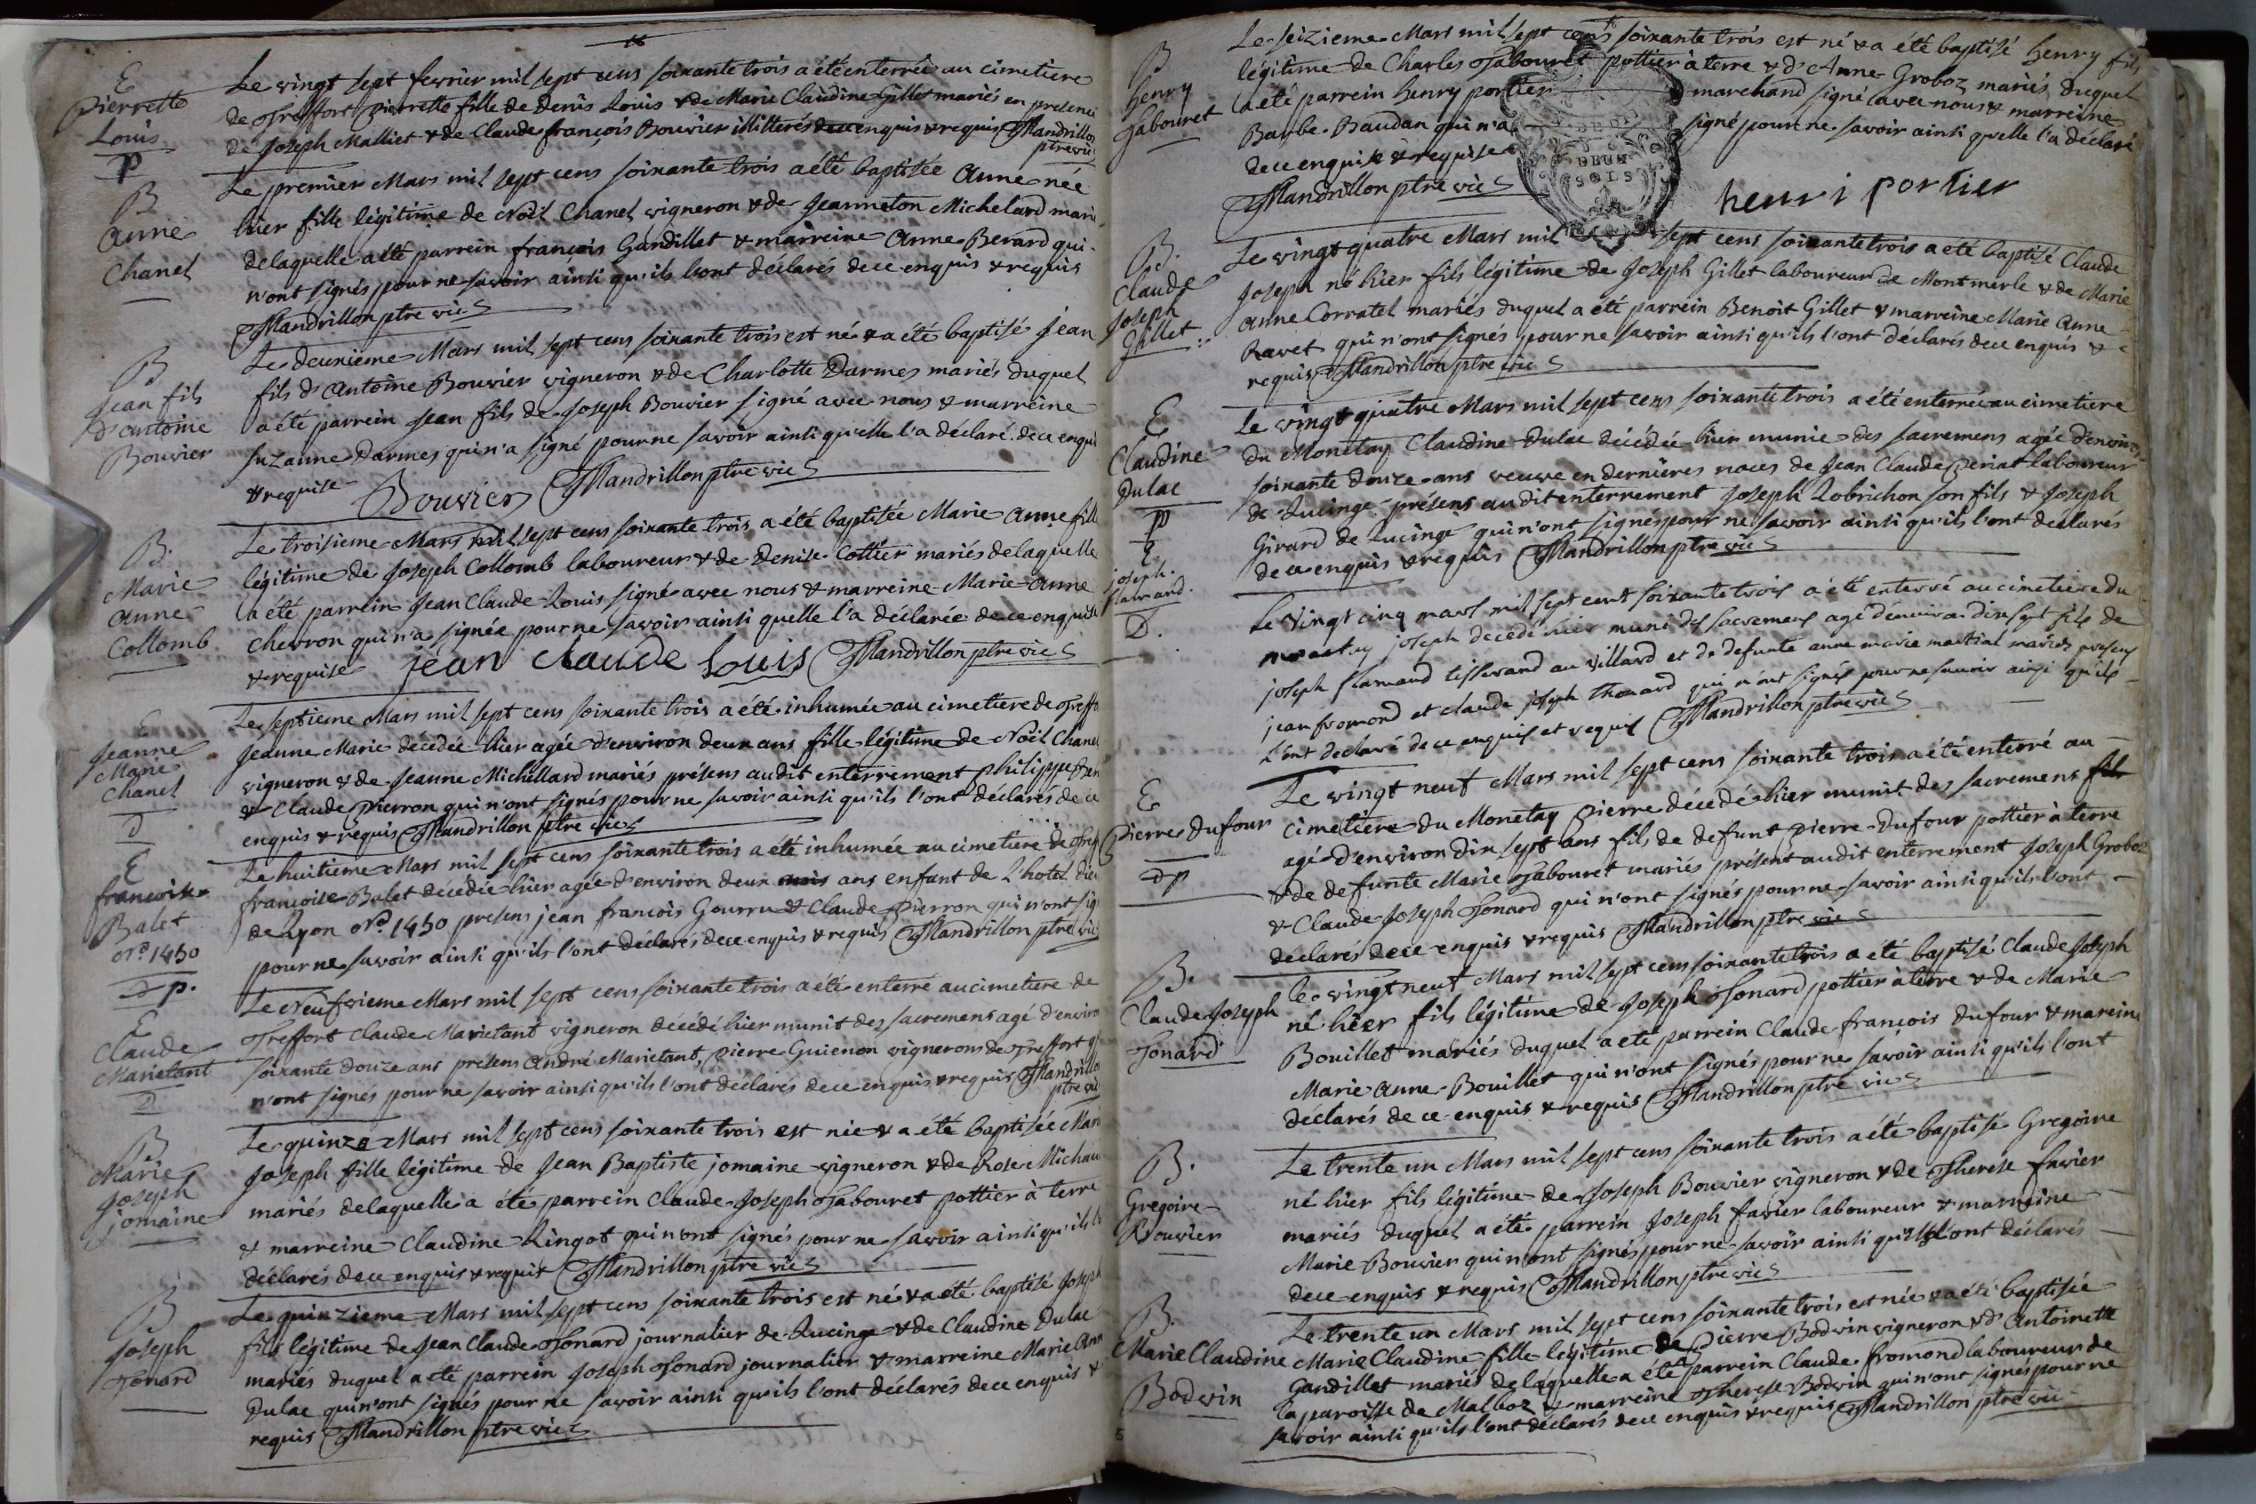 E
Pierrette
Louis
P
Le vingt sept fevrier mil sept cens soixante trois a été enterrée au cimetiere
de Treffort Pierrette fille de Denis Louis & de Marie Claudine Gillet mariés en presence
de Joseph Malliet & de Claude françois Bouvier illitterés de ce enquis & requis Mandrillon
ptre vic
B
Anne
Chanel
Le premier Mars mil sept cens soixante trois a été baptisée Anne née
hier fille légitime de Noël Chanel vigneron & de Jeanneton Michelard mariés
de laquelle a été parrein françois Gandillet & marreine Anne Berard qui
n'ont signés pour ne savoir ainsi qu'ils l'ont déclarés de ce enquis & requis
Mandrillon ptre vic
B
Jean fils
d'antoine
Bouvier
Le deuxieme Mars mil sept cens soixante trois est né & a été baptisé Jean
fils d'Antoine Bouvier vigneron & de Charlotte Darmes mariés duquel
a été parrein Jean fils de Joseph Bouvier signé avec nous & marreine
Suzanne Darmes qui n'a signé pour ne savoir ainsi qu'elle l'a déclaré de ce enquise
& requise Bouvier Mandrillon ptre vic
B.
Marie
Anne
Collomb
Le troisieme Mars mil sept cens soixante trois a été baptisée Marie Anne fille
légitime de Joseph Collomb laboureur & de Denise Cottier mariés de laquelle
a été parrein Jean Claude Louis signé avec nous & marreine Marie Anne
Chevron qui n'a signée pour ne savoir ainsi quelle l'a déclarée de ce enquise
& requise jean claude Louis Mandrillon ptre vic
E
Jeanne
Marie
Chanel
D
Le septieme Mars mil sept cens soixante trois a été inhumée au cimetiere de Treffort
Jeanne Marie décédée hier agée d'environ deux ans fille légitime de Noël Chanel
vigneron & de Jeanne Michellard mariés présens audit enterrement philippe
& Claude Pierron qui n'ont signés pour ne savoir ainsi qu'ils l'ont déclarés de ce
enquis & requis Mandrillon ptre vic
E
francoise
Balet
No. 1450
Dp.
Le huitieme Mars mil sept cens soixante trois a été inhumée au cimetiere de Treffort
francoise Balet décédée hier agée d'environ deux mois ans enfant de l'hotel dieu
de Lyon No. 1450 presens jean françois Gourru & Claude Pierron qui n'ont sig
pour ne savoir ainsi qu'ils l'ont déclarés de ce enquis & requis Mandrillon ptre vic
E
Claude
Marietant
D
Le Neufvieme Mars mil sept cens soixante trois a été enterré au cimetiere de
Treffort Claude Marietant vigneron décédé hier munit des sacremens agé d'environ
soixante douze ans présens André Marietant, Pierre Guienon vignerons de Treffort q
n'ont signés pour ne savoir ainsi qu'ils l'ont déclarés de ce enquis & requis Mandrillon
ptre vic
B
Marie
Joseph
jomaine
Le quinze Mars mil sept cens soixante trois est née & a été baptisée Marie
Joseph fille légitime de Jean Baptiste jomaine vigneron & de Rose Michau
mariés de laquelle a été parrein Claude Joseph Tabouret pottier à terre
& marreine Claudine Lingot qui n'ont signés pour ne savoir ainsi qu'ils l'o
déclarés de ce enquis & requis Mandrillon ptre vic
B
Joseph
Tonard
Le quinzieme Mars mil sept cens soixante trois est né & a été baptisé Joseph
fils légitime de Jean Claude Tonard journalier de Lucinge & de Claudine Dulac
mariés duquel a été parrein Joseph Tonard journalier & marreine Marie Anne
Dulac qui n'ont signés pour ne savoir ainsi qu'ils l'ont déclarés de ce enquis &
requis Mandrillon ptre vic
B
Henry
Tabouret
Le seizieme Mars mil sept cens soixante trois est né & a été baptisé Henry fils
légitime de Charles Tabouret pottier à terre & d'Anne Groboz mariés duquel
a été parrein Henry portier marchand signé avec nous & marreine
Barbe Baudan qui n'a signé pour ne savoir ainsi qu'elle l'a déclaré
de ce enquise & requise
Mandrillon ptre vic
henri portier
DEUX
SOLS
B.
Claude
Joseph
Gillet
Le vingt quatre Mars mil sept cens soixante trois a été baptisé Claude
Joseph né hier fils légitime de Joseph Gillet laboureur de Montmerle & de Marie
Anne Corratel mariés duquel a été parrein Benoit Gillet & marreine Marie Anne
Ravet qui n'ont signés pour ne savoir ainsi qu'ils l'ont déclarés de ce enquis &
requis Mandrillon ptre vic
E
Claudine
Dulac
P
Le vingt quatre Mars mil sept cens soixante trois a été enterrée au cimetiere
du Monetay Claudine Dulac décédée hier munie des sacremens agée d'environ
soixante douze ans veuve en dernières noces de Jean Claude Periat laboureur
de Lucinge présens audit enterrement Joseph Lobrichon son fils & Joseph
Girard de Lucinge qui n'ont signés pour ne savoir ainsi qu'ils l'ont déclarés
de ce enquis & requis Mandrillon ptre vic
E
joseph
flamand.
D.
Le vingt cinq mars mil sept cent soixante trois a été enterré au cimetiere du
monetay joseph decedé hier muni des sacremens agé d'environ dixsept fils de
joseph flamand tisserand au villard et de defunte anne marie martial mariés presens
jean fromond et claude joseph thonard qui n'ont signés pour ne savoir ainsi qu'ils
l'ont declaré de ce enquis et requis Mandrillon ptre vic
E
Pierre Dufour
Dp
Le vingt neuf Mars mil sept cens soixante trois a été enterré au
cimetiere du Monetay Pierre décédé hier munit des sacremens fils
agé d'environ dix sept ans fils de defunt Pierre Dufour pottier à terre
& de defunte Marie Tabouret mariés présent audit enterrement Joseph Groboz
& Claude Joseph Tonard qui n'ont signés pour ne savoir ainsi qu'ils l'ont
déclarés de ce enquis & requis Mandrillon ptre vic
B.
Claude Joseph
Tonard
Le vingt neuf Mars mil sept cens soixante trois a été baptisé Claude Joseph
né hier fils légitime de Joseph Tonard pottier à terre & de Marie
Bouillet mariés duquel a été parrein Claude françois Dufour & mareine
Marie Anne Bouillet qui n'ont signés pour ne savoir ainsi qu'ils l'ont
déclarés de ce enquis & requis Mandrillon ptre vic
B.
Gregoire
Bouvier
Le trente un Mars mil sept cens soixante trois a été baptisé Gregoire
né hier fils légitime de Joseph Bouvier vigneron & de Therése favier
mariés duquel a été parrein Joseph favier laboureur & marreine
Marie Bouvier qui n'ont signés pour ne savoir ainsi qu'ils l'ont déclarés
de ce enquis & requis Mandrillon ptre vic
B.
Marie Claudine
Bodvin
Le trente un Mars mil sept cens soixante trois est née & a été baptisée
Marie Claudine fille légitime de Pierre Bodvin vigneron & d'Antoinette
Gandillet mariés de laquelle a été parrein Claude fromond laboureur de
la paroisse de Malboz & marreine Therese Bodvin qui n'ont signés pour ne
savoir ainsi qu'ils l'ont déclarés de ce enquis & requis Mandrillon ptre vic